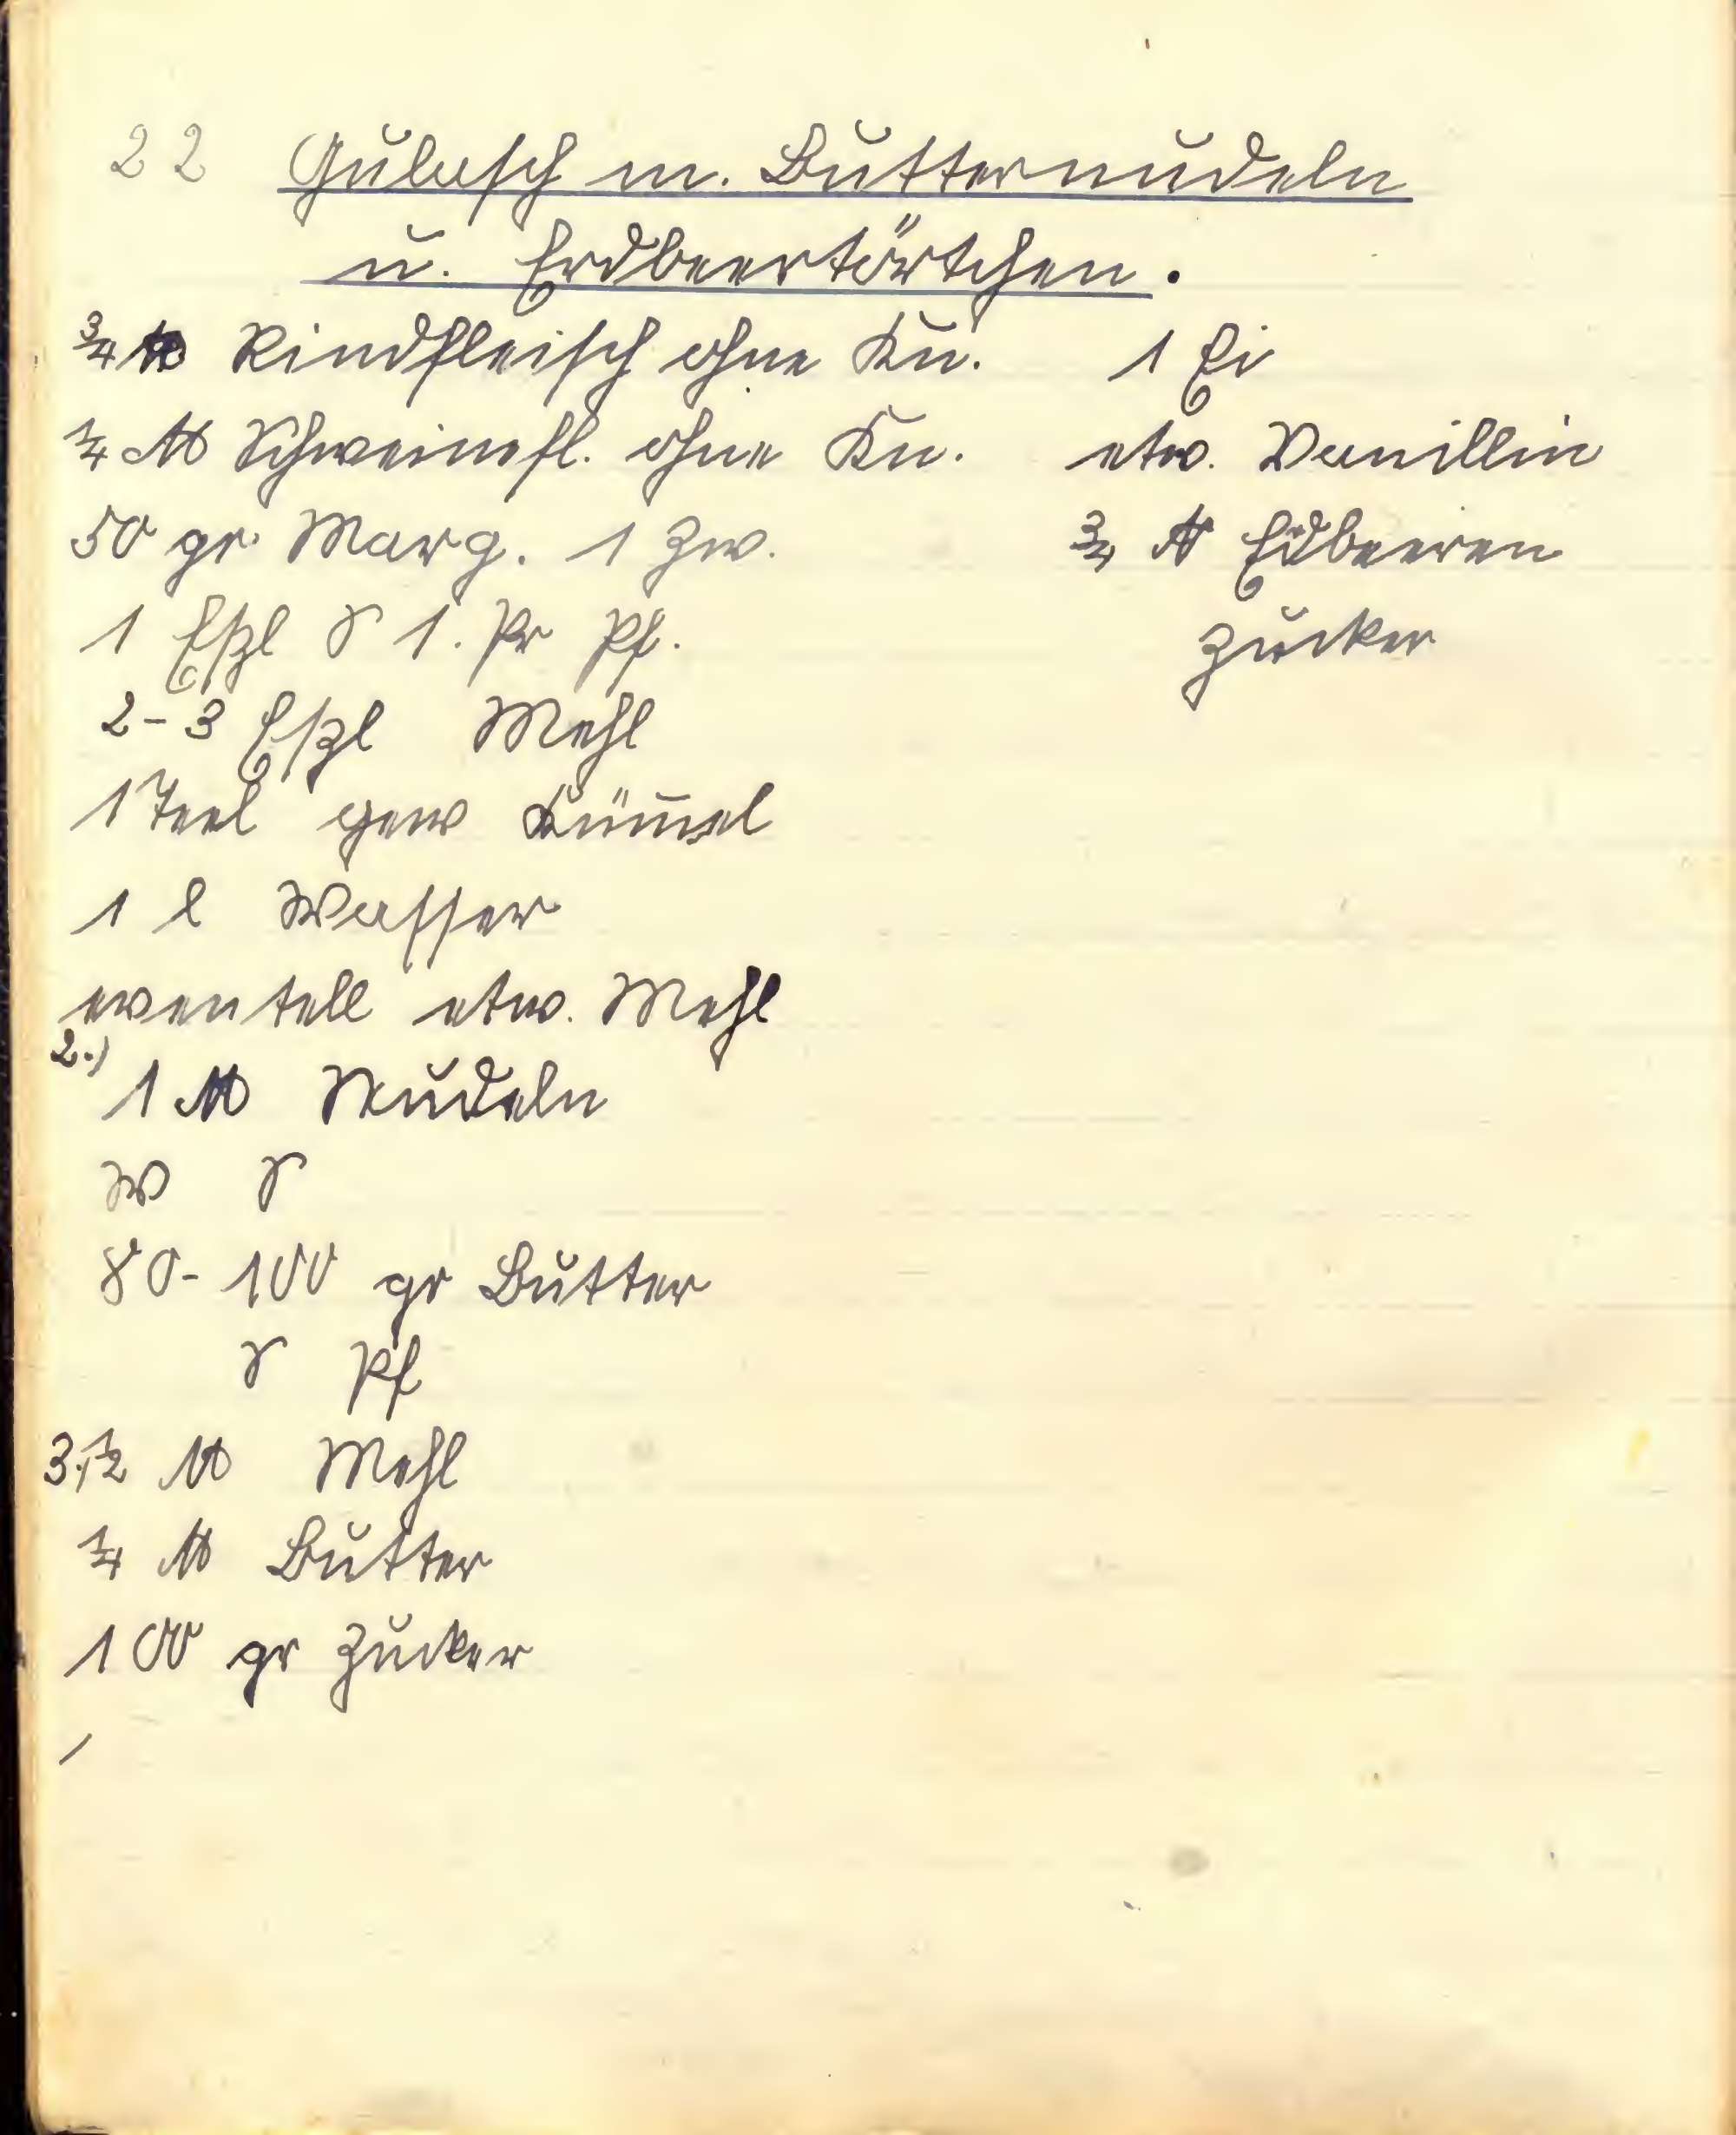 22 Gulasch m. Butternudeln
u. Erdbeertörtchen.
3/4 ℔ Rindfleisch ohne Kn.
1/4 ℔ Schweinefl. ohne Kn.
50 gr. Marg. 1 Zw.
1 Eßl S 1. Pr Pf.
2-3 Eßl Mehl
1 Teel gew Küm̅el
1 l Wasser
eventell etw. Mehl
2.) 1 ℔ Nudeln
W S
80-100 gr Butter
S Pf
3.) 1/2 ℔ Mehl
1/4 ℔ Butter
100 gr Zucker
1 Ei
etw. Vanillin
3/4 ℔ Erdbeeren
Zucker